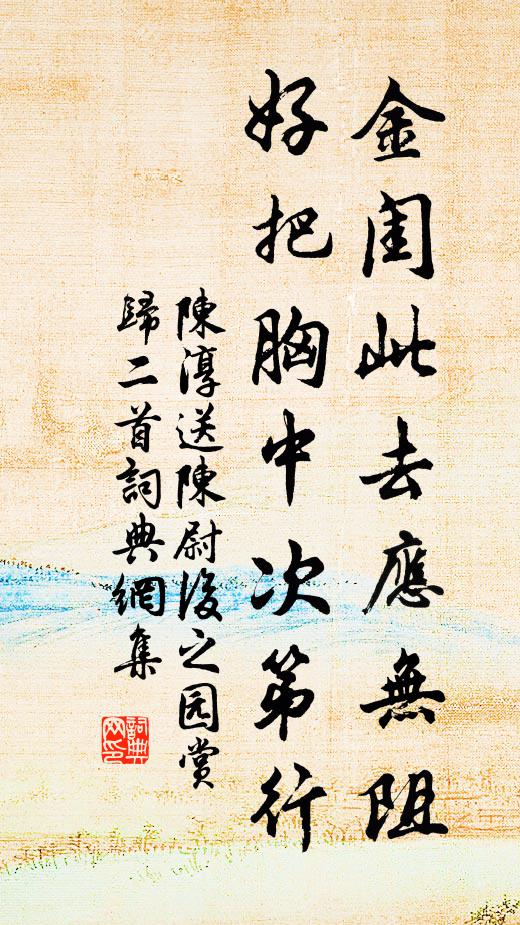 金閨此去應無阻
好把胸中次第行
陳淳送陳尉復之园赏
歸二首詞典網集
詞典
网印